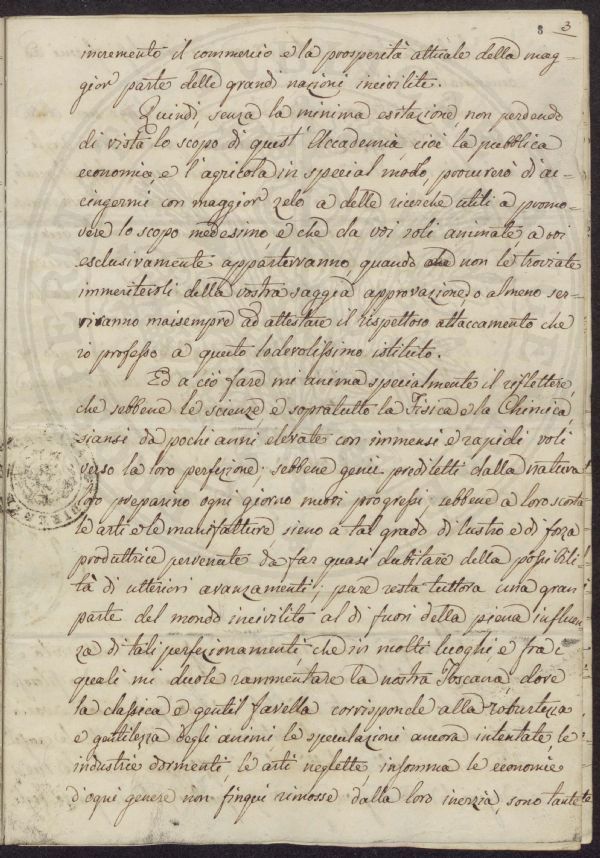 8 3
incremento il commercio e la prosperità attuale della mag=
gior parte delle grandi nazioni incivilite.
Quindi, senza la minima esitazione, non perdendo
di vista lo scopo di quest' Accademia, cioè la pubblica
economia, e l'agricola in special modo, procurerò di ac-
cingermi con maggior zelo a delle ricerche utili a promo-
vere lo scopo medesimo e che da voi soli animate a voi
esclusivamente apparterranno, quando non le troviate
immeritevoli della vostra saggia approvazione, o almeno ser-
viranno maisempre ad attestare il rispettoso attaccamento che
io professo a questo lodevolissimo istituto.
Ed a ciò fare mi anima specialmente il riflettere,
che sebbene le scienze, e sopratutto la Fisica e la Chimica
siansi da pochi anni elevate con immensi e rapidi voli
verso la loro perfezione; sebbene genii prediletti dalla natura
loro preparino ogni giorno nuovi progressi; sebbene a loro scorta
le arti e le manifatture sieno a tal grado di lustro e di forza
produttrice pervenute da far quasi dubitare della possibili-
tà di ulteriori avanzamenti; pure resta tuttora una gran
parte del mondo incivilito al di fuori della piena influen
za di tali perfezionamenti, che in molti luoghi, e fra i
quali mi duole rammentare la nostra Toscana, dove
la classica e gentil favella corrisponde alla robustezza
e gentilezza degli animi le speculazioni ancora intentate, le
industrie dormenti, le arti neglette, insomma le economie
d'ogni genere non finqui rimosse dalla loro inerzia, sono tante